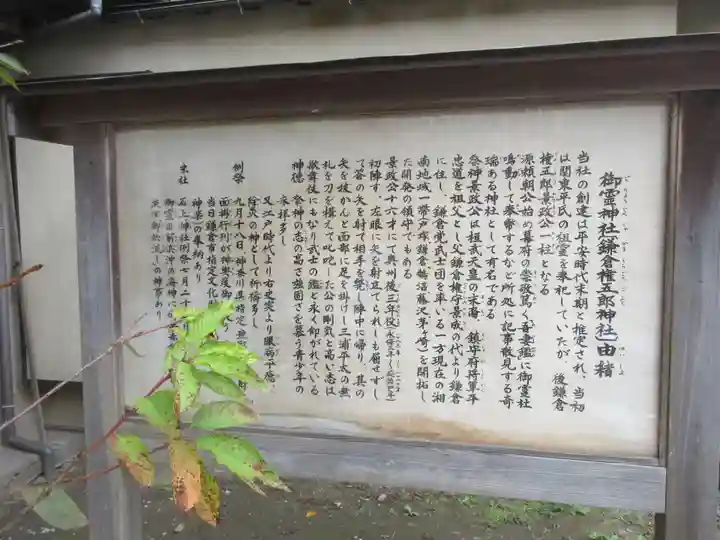 御霊神社(鎌倉権五郎神社)由緒
当社の創建は平安時代末期と推定され、当初
は関東平氏の祖霊を奉祀していたが、後鎌倉
権五郎景政公一柱となる
源頼朝公始め幕府の崇敬篤く吾妻鑑に御霊社
鳴動して奉幣するなど所処に記事散見する奇
瑞ある神社として有名である
祭神景政公は桓武天皇の末裔、鎮守府将軍平
忠通を祖父とし父鎌倉権守景成の代より鎌倉
に住し、鎌倉党武士団を率いる一方現在の湘
南地域一帯戸塚鎌倉鵠沼藤沢茅ヶ崎を開拓し
た開発の領守でもある
景政公十六才にて奥州後三年役
初陣す、左眼に矢を射立てられしも屈せずし
て答の矢を射て相手を発し陣中に帰り、其の
矢を抜かんと面部に足を掛けし三浦平太の無
礼を刀を構えて叱咤した公の剛気と高い志は
歌舞伎にもなり武士の鑑と永く仰がれている
神徳 祭神の志の高さ強固さを慕う青少年の
参拝多し
又江戸時代より右史実より眼病平癒、
除災の神として祈祷多し
例祭 九月十八日、神奈川県指定無形
面掛行列が神輿渡御
当日鎌倉市指定文化財
神楽の奉納あり
末社 石上神社例祭七月二十
御霊由前浜沖の海神